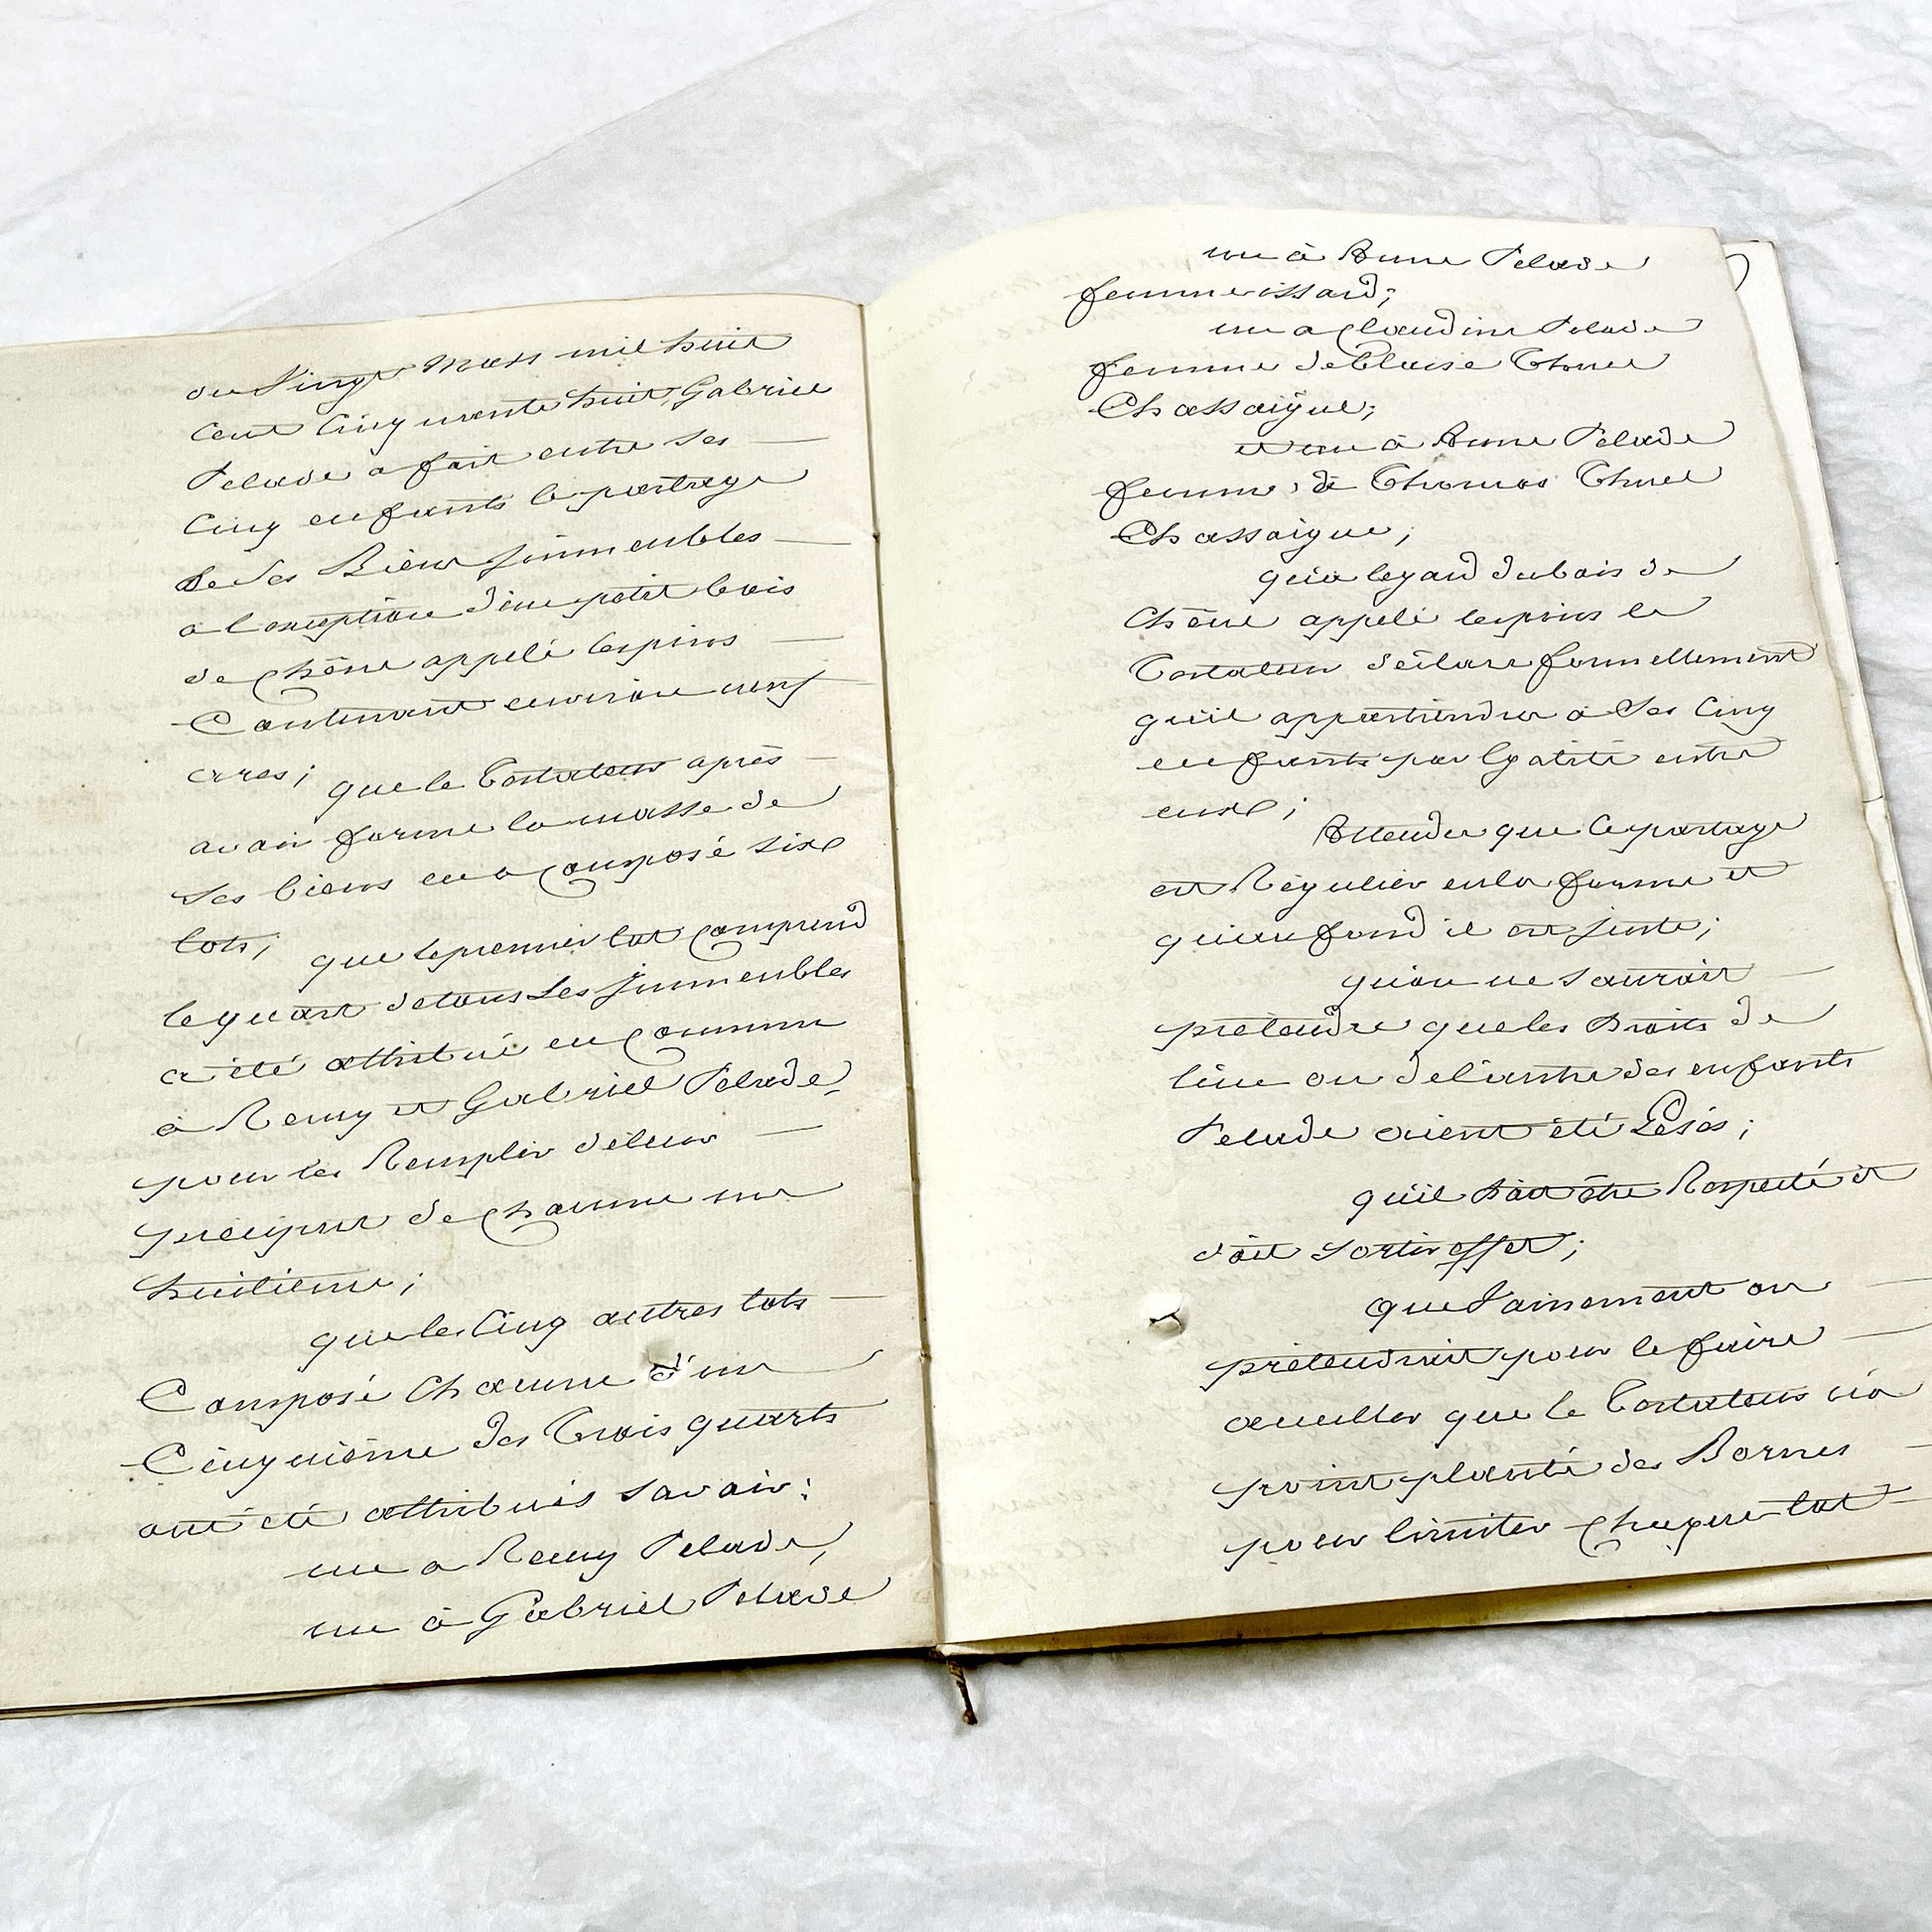 du Vingt Mars mil huit
cent Cinquante huit, Gabriel
Pelade a fait entre ses
Cinq enfants le partage
de ses Biens Immeubles
a l'exception d'un petit bois
de Chêne appelé lespins
Contenant environ neuf
ares;
que le Testateur après
avoir formé la masse de
ses biens en a Composé six
lots;
que le premier lot Comprend
le quart de tous les Immeubles
a été attribué en Commun
à Remy et Gabriel Pelade,
pour les Remplir de leur
préciput de Chacun un
huitieme;
que les Cinq autres lots
Composé Chacun d'un
Cinquième des Trois quarts
ont été attribués savoir:
un a Remy Pelade,
un à Gabriel Pelade
un à Anne Pelade
femme issard;
un a Claudine Pelade
femme de Blaise Thuel
Chassaigue;
et un à Anne Pelade
femme de Thomas Thuel
Chassaigue;
qu'a legard du bois de
Chêne appelé lespins le
Testateur déclare formellement
qu'il appartiendra à ses Cinq
enfants par Egalité entre
eux;
Attendu que ce partage
est Régulier en la forme et
qu'au fond il est juste;
qu'on ne saurait
prétendre que les Droits de
l'un ou de l'autre des enfants
Pelade aient été Lésés;
qu'il doit être Respecté et
doit sortir effet;
que Vainement on
prétendrait pour le faire
annuller que le Testateur n'a
point planté des Bornes
pour limiter Chaque lot